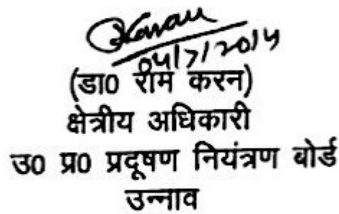 Karan
04/7/2014
(डा0 राम करन)
क्षेत्रीय अधिकारी
उ0 प्र0 प्रदूषण नियंत्रण बोर्ड
उन्नाव